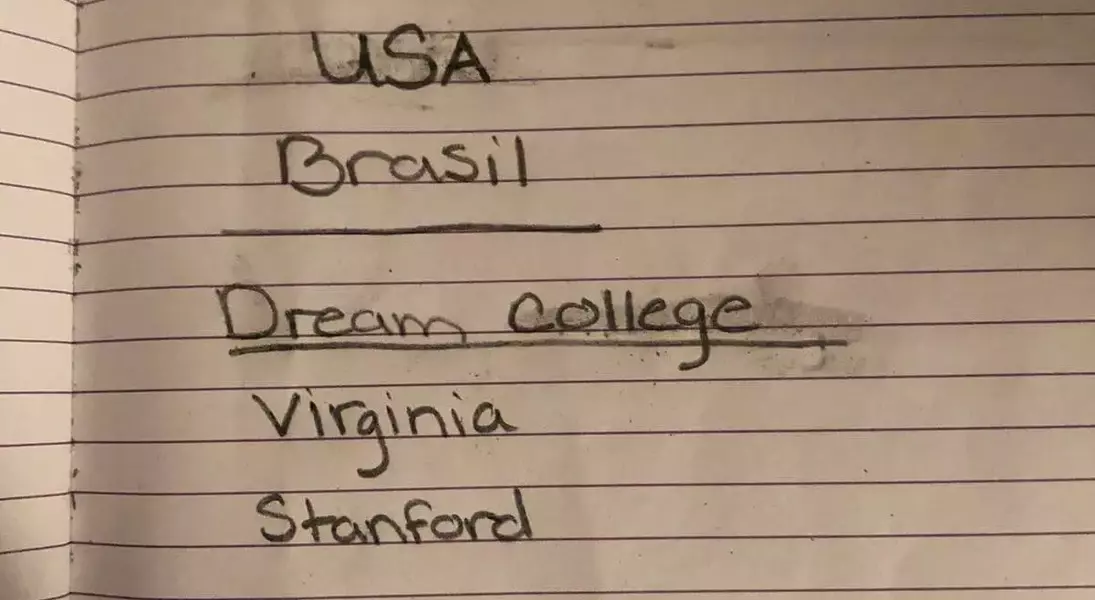 USA
Brasil
Dream college
Virginia
Stanford